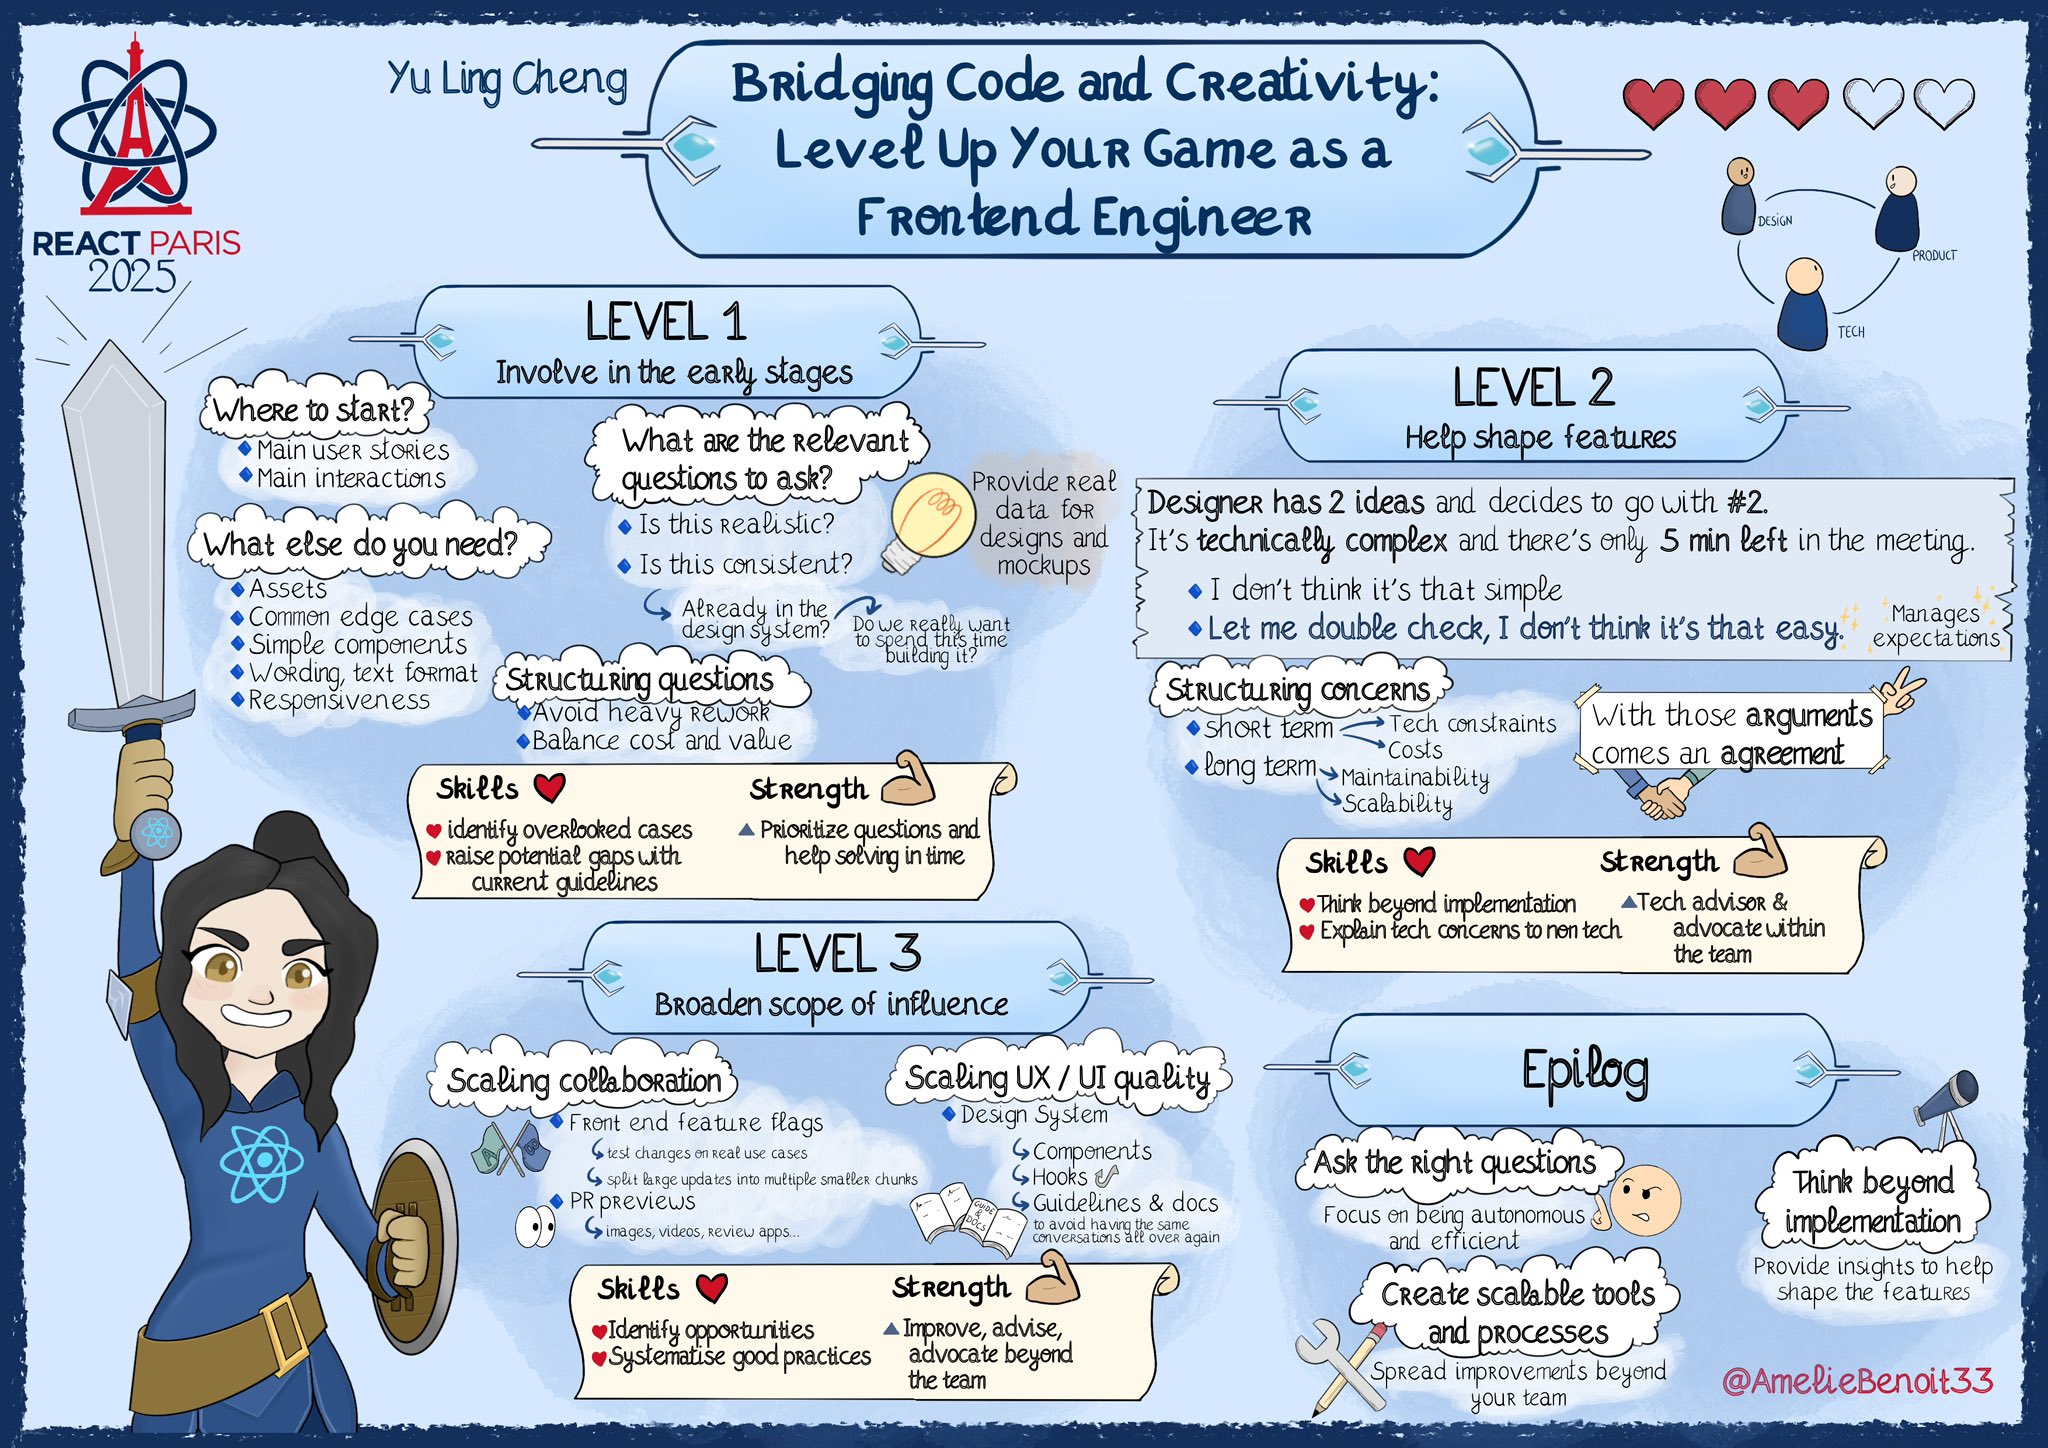 REACT PARIS
2025
Yu Ling Cheng
Bridging Code and Creativity:
Level Up Your Game as a
Frontend Engineer
DESIGN
PRODUCT
TECH
LEVEL 1
Involve in the early stages
Where to start?
Main user stories
Main interactions
What else do you need?
Assets
Common edge cases
Simple components
Wording, text format
Responsiveness
What are the relevant
questions to ask?
Is this realistic?
Is this consistent?
Already in the
design system?
Do we really want
to spend this time
building it?
Provide real
data for
designs and
mockups
Structuring questions
Avoid heavy rework
Balance cost and value
Skills
identify overlooked cases
raise potential gaps with
current guidelines
Strength
Prioritize questions and
help solving in time
LEVEL 2
Help shape features
Designer has 2 ideas and decides to go with #2.
It's technically complex and there's only 5 min left in the meeting.
I don't think it's that simple
Let me double check, I don't think it's that easy.
Manages
expectations
Structuring concerns
short term
Tech constraints
Costs
long term
Maintainability
Scalability
With those arguments
comes an agreement
Skills
Think beyond implementation
Explain tech concerns to non tech
Strength
Tech advisor &
advocate within
the team
LEVEL 3
Broaden scope of influence
Scaling collaboration
Front end feature flags
test changes on real use cases
split large updates into multiple smaller chunks
PR previews
images, videos, review apps...
A
B
Scaling UX / UI quality
Design System
Components
Hooks
Guidelines & docs
to avoid having the same
conversations all over again
GUIDE
&
DOCS
Skills
Identify opportunities
Systematise good practices
Strength
Improve, advise,
advocate beyond
the team
Epilog
Ask the right questions
Focus on being autonomous
and efficient
Think beyond
implementation
Provide insights to help
shape the features
Create scalable tools
and processes
Spread improvements beyond
your team
@AmelieBenoit33